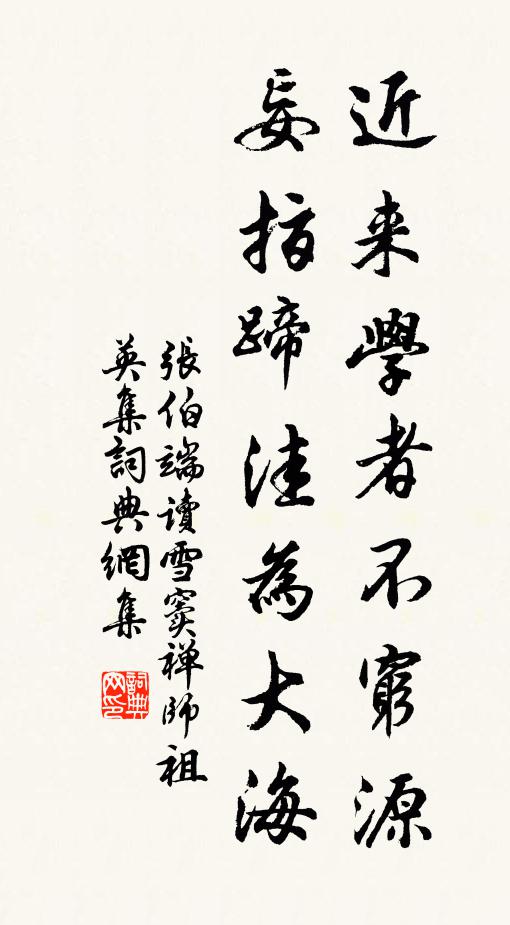 近来學者不窮源
妄指蹄洼為大海
張伯端读雪窦禅师祖
英集詞典網集
詞典网印